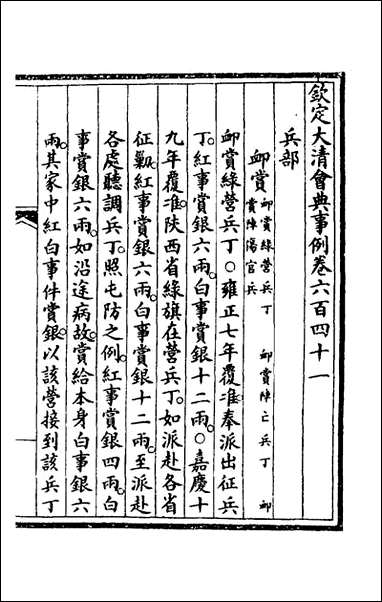 欽定大清會典事例卷六百四十一
兵部
卹賞 卹賞綠營兵丁 卹賞陣亡兵丁 卹
賞陣傷官兵
卹賞綠營兵丁○雍正七年覆准奉派出征兵
丁紅事賞銀六兩白事賞銀十二兩○嘉慶十
九年覆准陝西省綠旗在營兵丁如派赴各省
征勦紅事賞銀六兩白事賞銀十二兩至派赴
各處聽調兵丁照屯防之例紅事賞銀四兩白
事賞銀六兩如沿途病故賞給本身白事銀六
兩其家中紅白事件賞銀以該營接到該兵丁